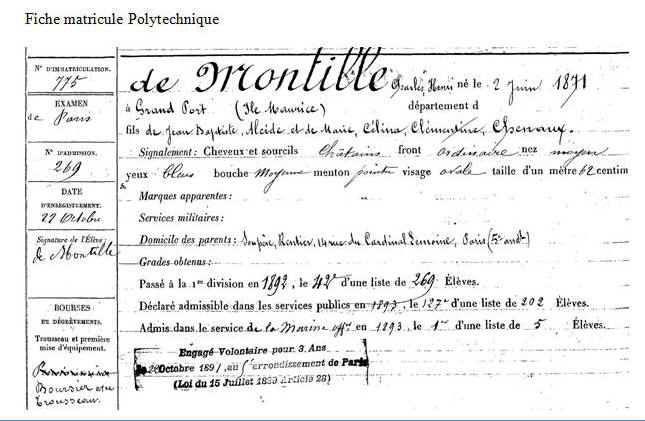 Fiche matricule Polytechnique
N° D'IMMATRICULATION.
775
EXAMEN
de Paris
N° D'ADMISSION.
269
DATE
D'ENREGISTREMENT.
22 Octobre
Signature de l'Élève:
de Montille
BOURSES
ET DÉGRÈVEMENTS.
Trousseau et première
mise d'équipement.
Boursier avec
trousseau.
de Montille Charles Henri né le 2 Juin 1871
à Grand Port (Ile Maurice) département d
fils de Jean Baptiste, Alcide et de Marie, Célina, Clémentine, Chenaux.
Signalement: Cheveux et sourcils Châtains front ordinaire nez moyen
yeux bleus bouche Moyenne menton pointu visage ovale taille d'un mètre 62 centim
Marques apparentes: "
Services militaires:
Domicile des parents: Rentier, 14 rue du Cardinal Lemoine, Paris (5e arrdt)
Grades obtenus:
Passé à la 1re division en 1892, le 42e d'une liste de 269 Élèves.
Déclaré admissible dans les services publics en 1893, le 127e d'une liste de 202 Élèves.
Admis dans le service de la Marine en 1893, le 1er d'une liste de 5 Élèves.
Engagé Volontaire pour 3 Ans
le 22 Octobre 1891, au 5e arrondissement de Paris
(Loi du 15 Juillet 1889 Article 28)